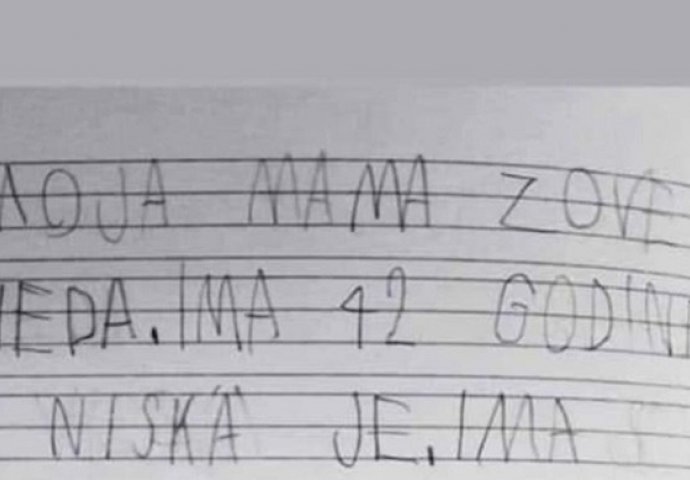 MOJA MAMA ZOVE
NEDA. IMA 42 GODIN
NISKA JE. IMA